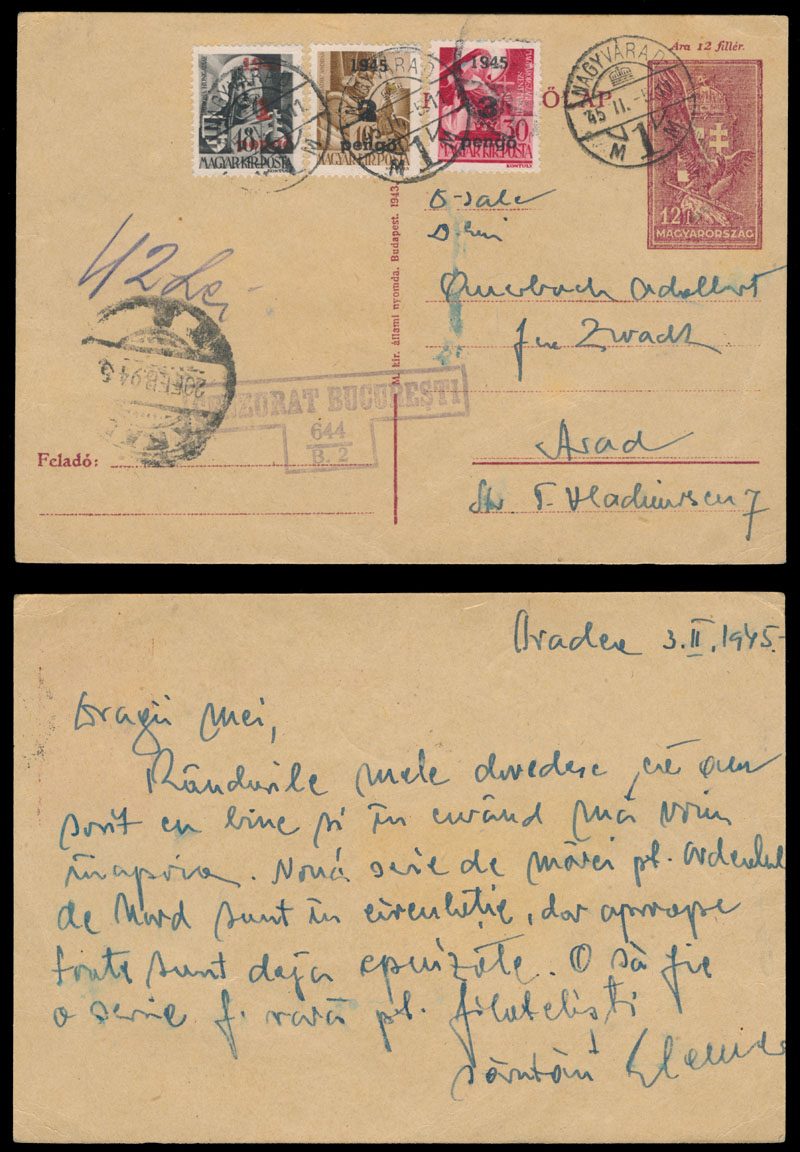 Ára 12 fillér.
1945 1945
NAGYVÁRAD
45 II. -5
M 1 M
1 2 3
18 30
pengő pengő pengő
MAGYAR KIR. POSTA MAGYAR KIR. POSTA MAGYAR KIR. POSTA
12
MAGYARORSZÁG
M. kir. állami nyomda, Budapest. 1943.
42 Lei
20 FEB 945
BUCUREȘTI
644
B. 2
Feladó:
D-sale
D-lui
Auerbach Adalbert
Arad
Str T. Vladimirescu 7
Oradea 3.II.1945.-
Dragii mei,
Rândurile mele dovedesc, că am
sosit cu bine și în curând mă voiu
înapoia. Nouă serie de mărci pt. Ardealul
de Nord sunt în circulație, dar aproape
toate sunt deja epuizate. O să fie
o serie f. rară pt. filateliști